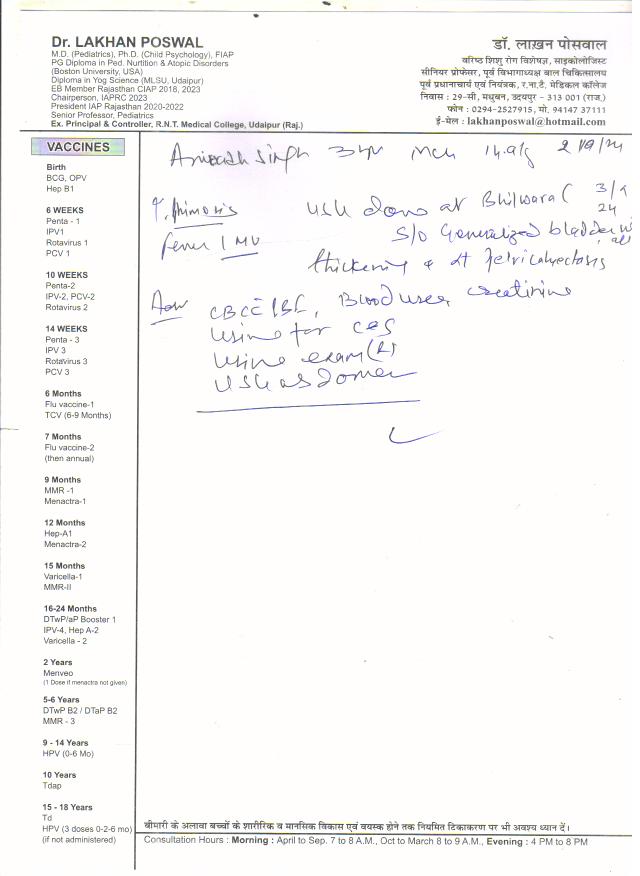 Dr. LAKHAN POSWAL
M.D. (Pediatrics), Ph.D. (Child Psychology), FIAP
PG Diploma in Ped. Nurtition & Atopic Disorders
(Boston University, USA)
Diploma in Yog Science (MLSU, Udaipur)
EB Member Rajasthan CIAP 2018, 2023
Chairperson, IAPRC 2023
President IAP Rajasthan 2020-2022
Senior Professor, Pediatrics
Ex. Principal & Controller, R.N.T. Medical College, Udaipur (Raj.)
डॉ. लाखन पोसवाल
वरिष्ठ शिशु रोग विशेषज्ञ, साइकोलोजिस्ट
सीनियर प्रोफेसर, पूर्व विभागाध्यक्ष बाल चिकित्सालय
पूर्व प्रधानाचार्य एवं नियंत्रक, र.ना.टै. मेडिकल कॉलेज
निवास : 29-सी, मधुबन, उदयपुर - 313 001 (राज.)
फोन : 0294-2527915, मो. 94147 37111
ई-मेल : lakhanposwal@hotmail.com
VACCINES
Birth
BCG, OPV
Hep B1
6 WEEKS
Penta - 1
IPV1
Rotavirus 1
PCV 1
10 WEEKS
Penta-2
IPV-2, PCV-2
Rotavirus 2
14 WEEKS
Penta - 3
IPV 3
Rotavirus 3
PCV 3
6 Months
Flu vaccine-1
TCV (6-9 Months)
7 Months
Flu vaccine-2
(then annual)
9 Months
MMR -1
Menactra-1
12 Months
Hep-A1
Menactra-2
15 Months
Varicella-1
MMR-II
16-24 Months
DTwP/aP Booster 1
IPV-4, Hep A-2
Varicella - 2
2 Years
Menveo
(1 Dose if menactra not given)
5-6 Years
DTwP B2 / DTaP B2
MMR - 3
9 - 14 Years
HPV (0-6 Mo)
10 Years
Tdap
15 - 18 Years
Td
HPV (3 doses 0-2-6 mo)
(if not administered)
Singh 3 yr Mch 14.9
Phimosis USG done at Bhilwara ( 3/9
24
S/o Generalized bladder
Fever
thickening
Adv CBC Blood urea, creatinine
urine for C&S
urine exam (R)
USG abdomen
बीमारी के अलावा बच्चों के शारीरिक व मानसिक विकास एवं वयस्क होने तक नियमित टिकाकरण पर भी अवश्य ध्यान दें।
Consultation Hours : Morning : April to Sep. 7 to 8 A.M., Oct to March 8 to 9 A.M., Evening : 4 PM to 8 PM